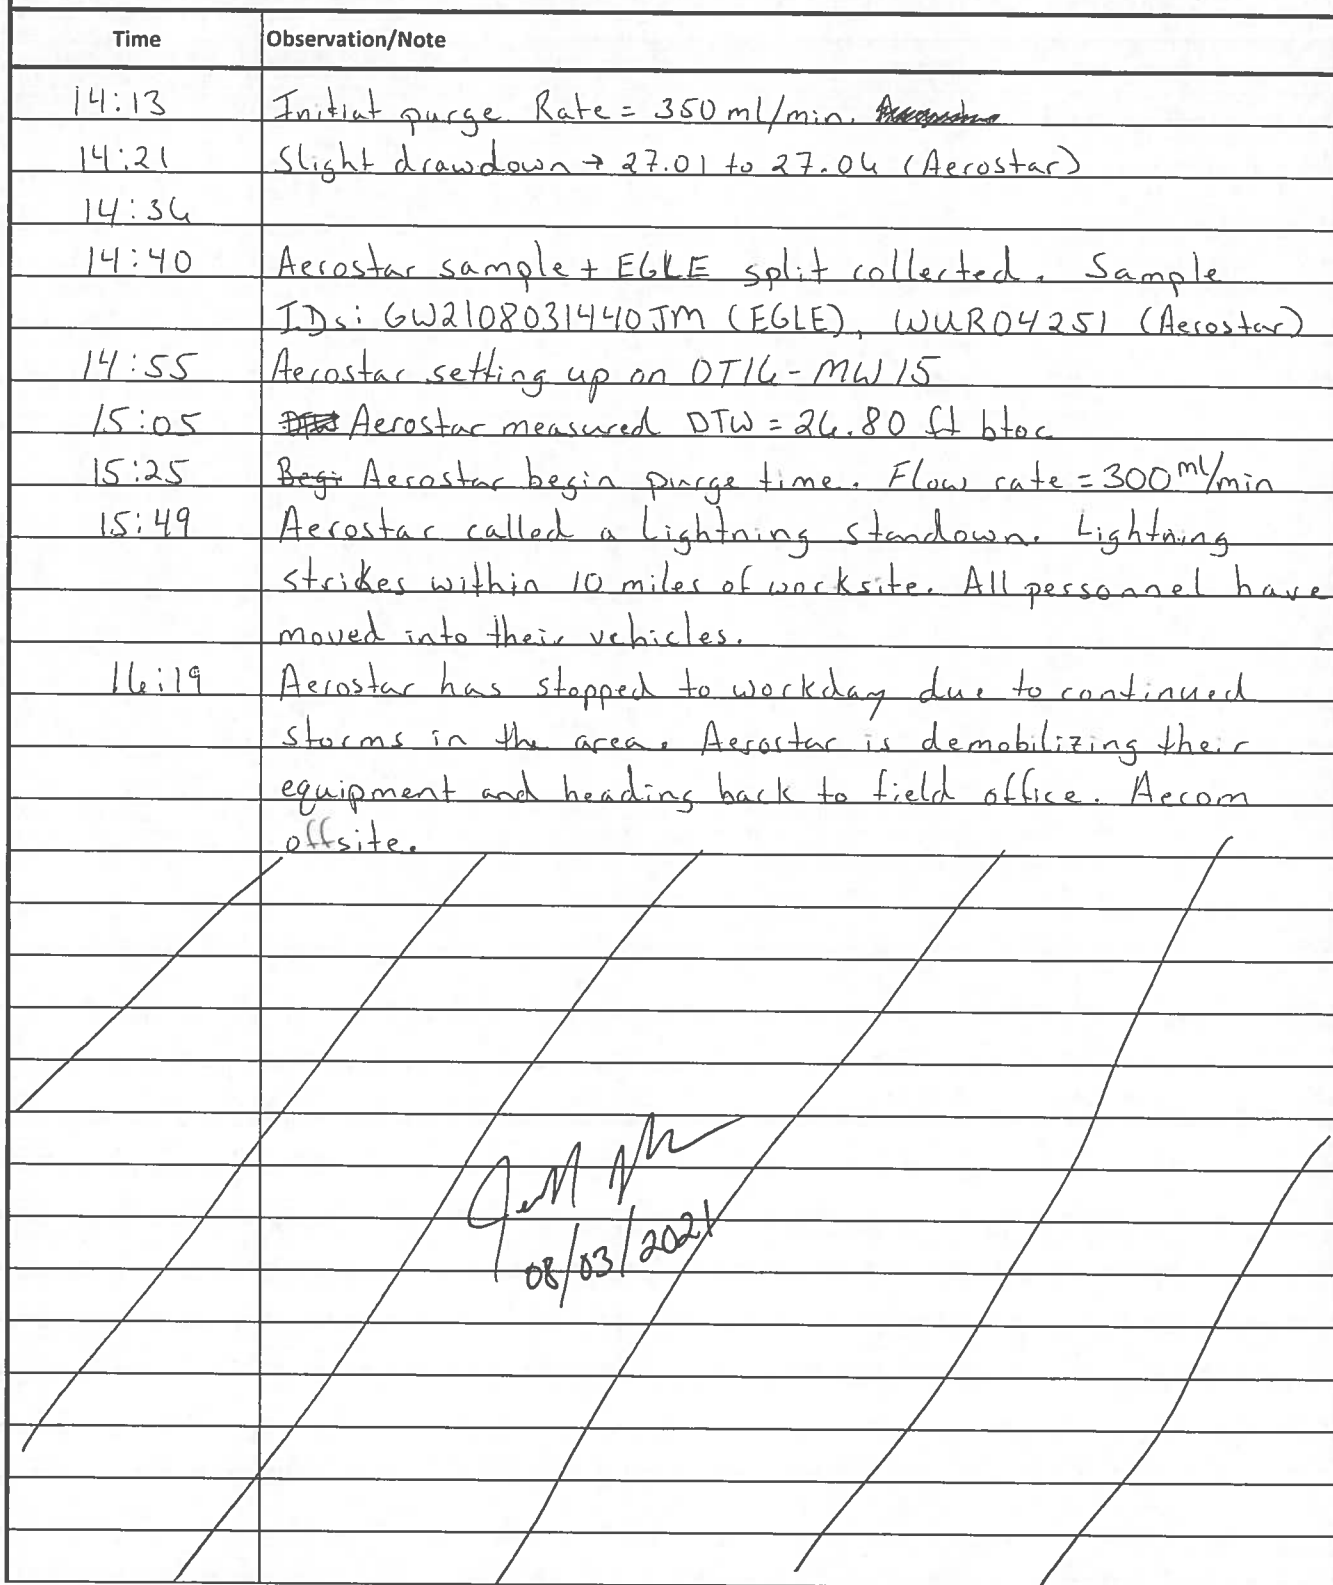 Time Observation/Note
14:13 Initial purge. Rate = 350 ml/min.
14:21 Slight drawdown → 27.01 to 27.06 (Aerostar)
14:36
14:40 Aerostar sample + EGLE split collected. Sample
IDs: GW2108031440JM (EGLE), WUR04251 (Aerostar)
14:55 Aerostar setting up on OT16-MW15
15:05 Aerostar measured DTW = 26.80 ft btoc
15:25 Begi Aerostar begin purge time. Flow rate = 300 ml/min
15:49 Aerostar called a Lightning standown. Lightning
strikes within 10 miles of worksite. All personnel have
moved into their vehicles.
16:19 Aerostar has stopped to workday due to continued
storms in the area. Aerostar is demobilizing their
equipment and heading back to field office. Aecom
offsite.
08/03/2021